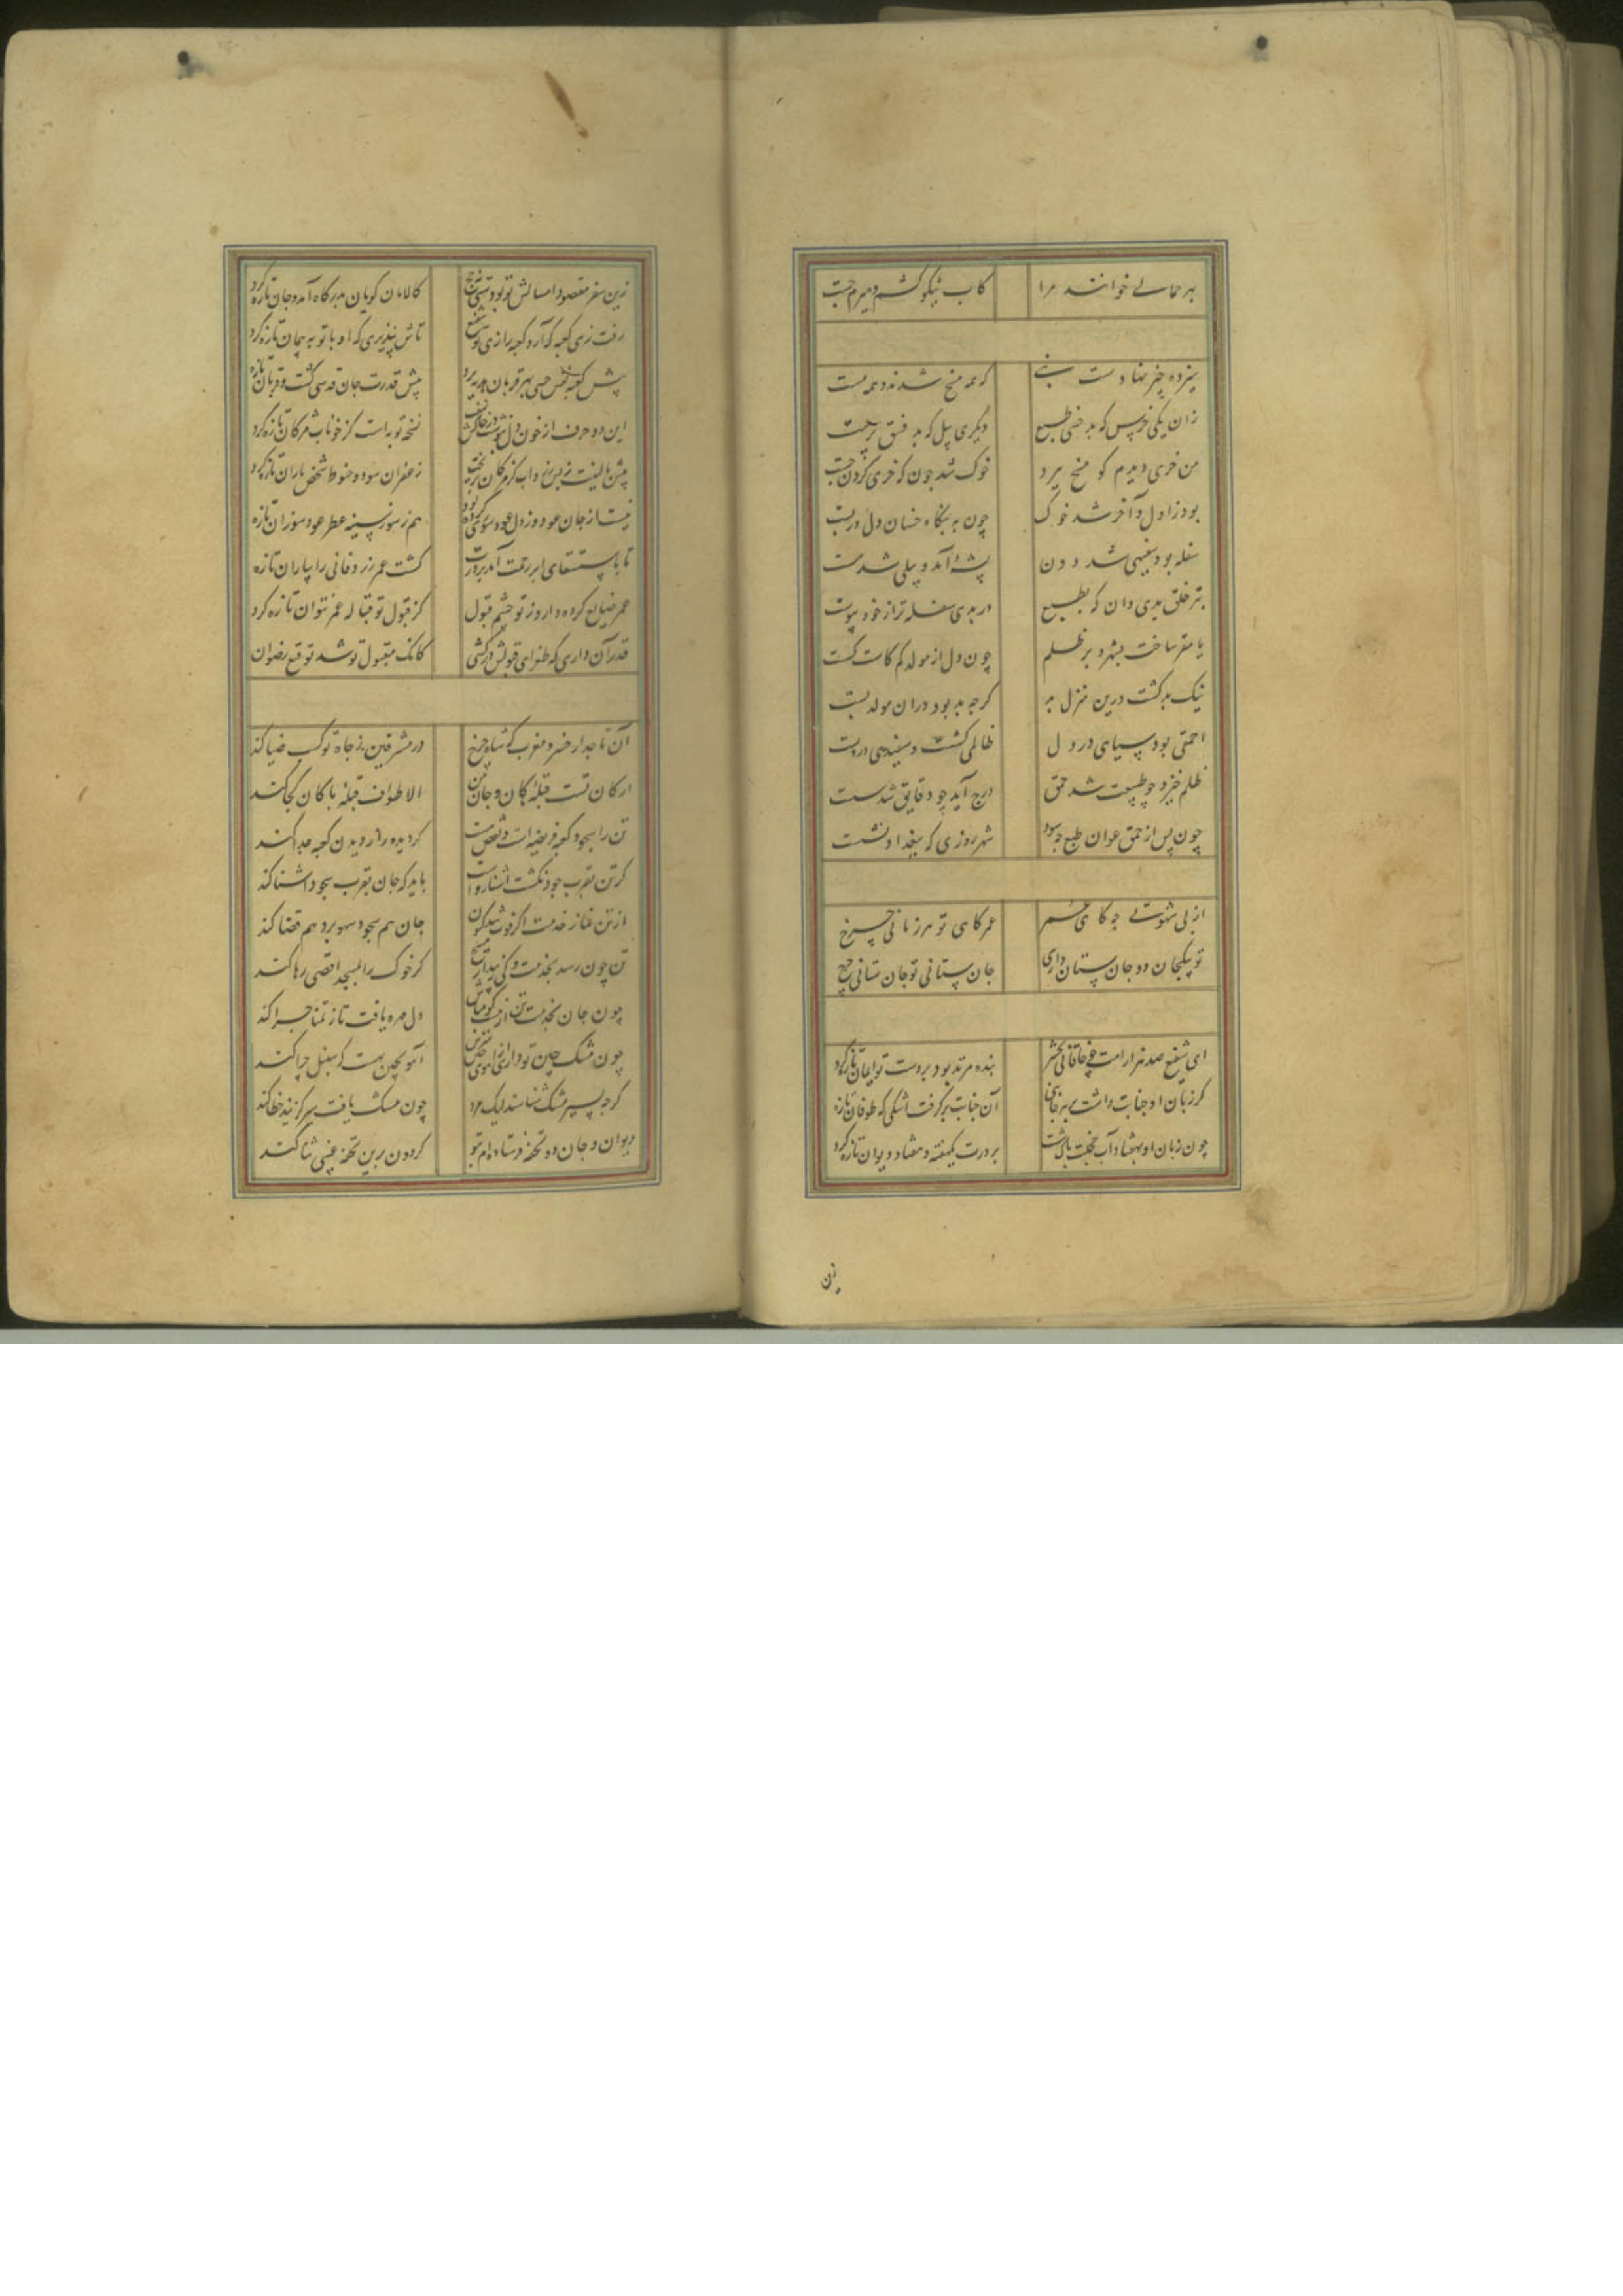 بهر حمالی خوانند مرا
کاب نیکو کشم و هیزم چست
سیزده چیز نهادست
که همه مسخ شدند و همه هست
زان یکی خرس که بد خنثی طبع
دیگری پیل که بد فسق پرست
من خری دیدم کو مسخ نبرد
خوک شد چون که خری کردن جست
بود ز اول و آخر شد خوک
چون به بنگاه خسان دل دربست
سفله بود سفیهی شد دون
پشه آمد و پیلی شد مست
بتر خلق بدی دان که بطبع
در بدی سفله تر از خود پیوست
یا مقر ساخت بشهر و بر ظلم
چون دل از مولد کم کاست گسست
نیک بد گشت درین منزل بد
گرچه بد بود در آن مولد پست
احمقی بود سیاهی در دل
ظالمی گشت و سفیدی در دست
ظلم خیزد چو طبیعت شد حمق
درج آید چو دقایق شد شست
چون پس از حمق عوان طبع چه سود
شهرروزی که ببغداد نشست
از پی شهوتی چه کاهی عمر
عمرکاهی تو هر زمانی چرخ
تو بیکجان دو جان ستان داری
جان ستانی تو جان ستانی چرخ
ای شفیع صد هزار امت چو خاقانی بحشر
بنده مرتد بود بر دست تو ایمان تازه کرد
گر زبان او جنابت داشت
آن جنابت برگرفت اشکی که طوفان تازه
چون زبان او بهفتاد آب خجلت
بر درت یکهفته و هفتاد دیوان تازه کرد
زین سفر مقصود امسالش تو بودی
کالامان گویان بدرگاه آمد و جان تازه کرد
رفت زی کعبه که آرد کعبه را زی تو شفیع
تاش بپذیری که او با توبه پیمان تازه کرد
پیش کعبه نفس حسی بهر قربان هدیه برد
پیش قدرت جان قدسی گشت و قربان تازه
این دو حرف از خون دل
نسخه توبه است کز خوناب مژگان تازه کرد
زعفران سود و حنوط شخص یاران تازه کرد
نیست از جان عود و ز دل عودسوزی کرده بود
هم ز سوز سینه عطر عودسوزان تازه
تا باستسقای ابر رحمت آمد بر درت
کشت عمر زرد فانی را بباران تازه
عمر ضایع کرده دارد وز تو چشم قبول
کز قبول تو قباله عمر نتوان تازه کرد
قدر آن داری که طغرای قبولش برکشی
کانک مقبول تو شد توقیع رضوان
آن تاجدار خضر و مغرب که شاه چرخ
در مشرقین ز جاه تو کسب ضیا کند
ارکان تست قبله کان و جان
الا طواف قبله پاکان کجا کند
تن را سجود کعبه فریضه است
گر دیده را ز دیدن کعبه جدا کند
گر تن بقرب
باید که جان بقرب سجود آشنا کند
از تن نماز خدمت اگر فوت شد کنون
جان هم سجود سهو برد هم قضا کند
تن چون رسد بخدمت و کی زیبد از مسیح
گر خوک را بمسجد اقصی رها کند
چون جان بخدمتت تن
دل مهره یافت تا ز تمنا چرا کند
چون مشک چین تو داری ز آهوی
آهو بچین به است که سنبل چرا کند
گرچه بسیر مشک شناسند لیک مرد
چون مشک یافت سیر گزیند خطا کند
دیوان و جان دو تحفه فرستاده‌ام بتو
گردون برین تحفه غیبی ثنا کند
زین